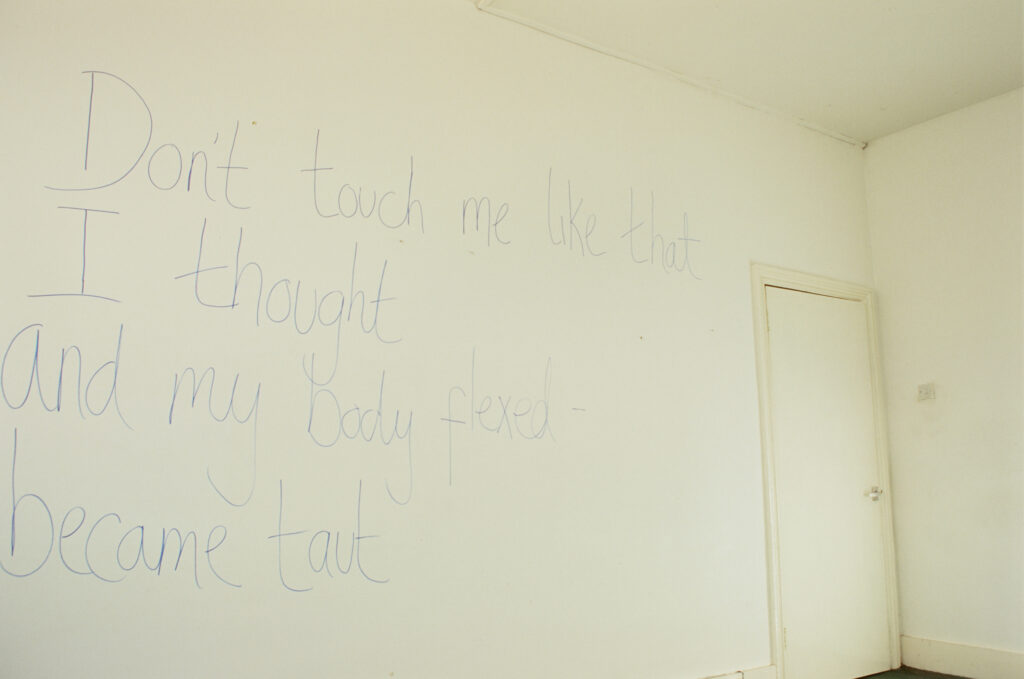 Don't touch me like that
I thought
and my body flexed -
became taut